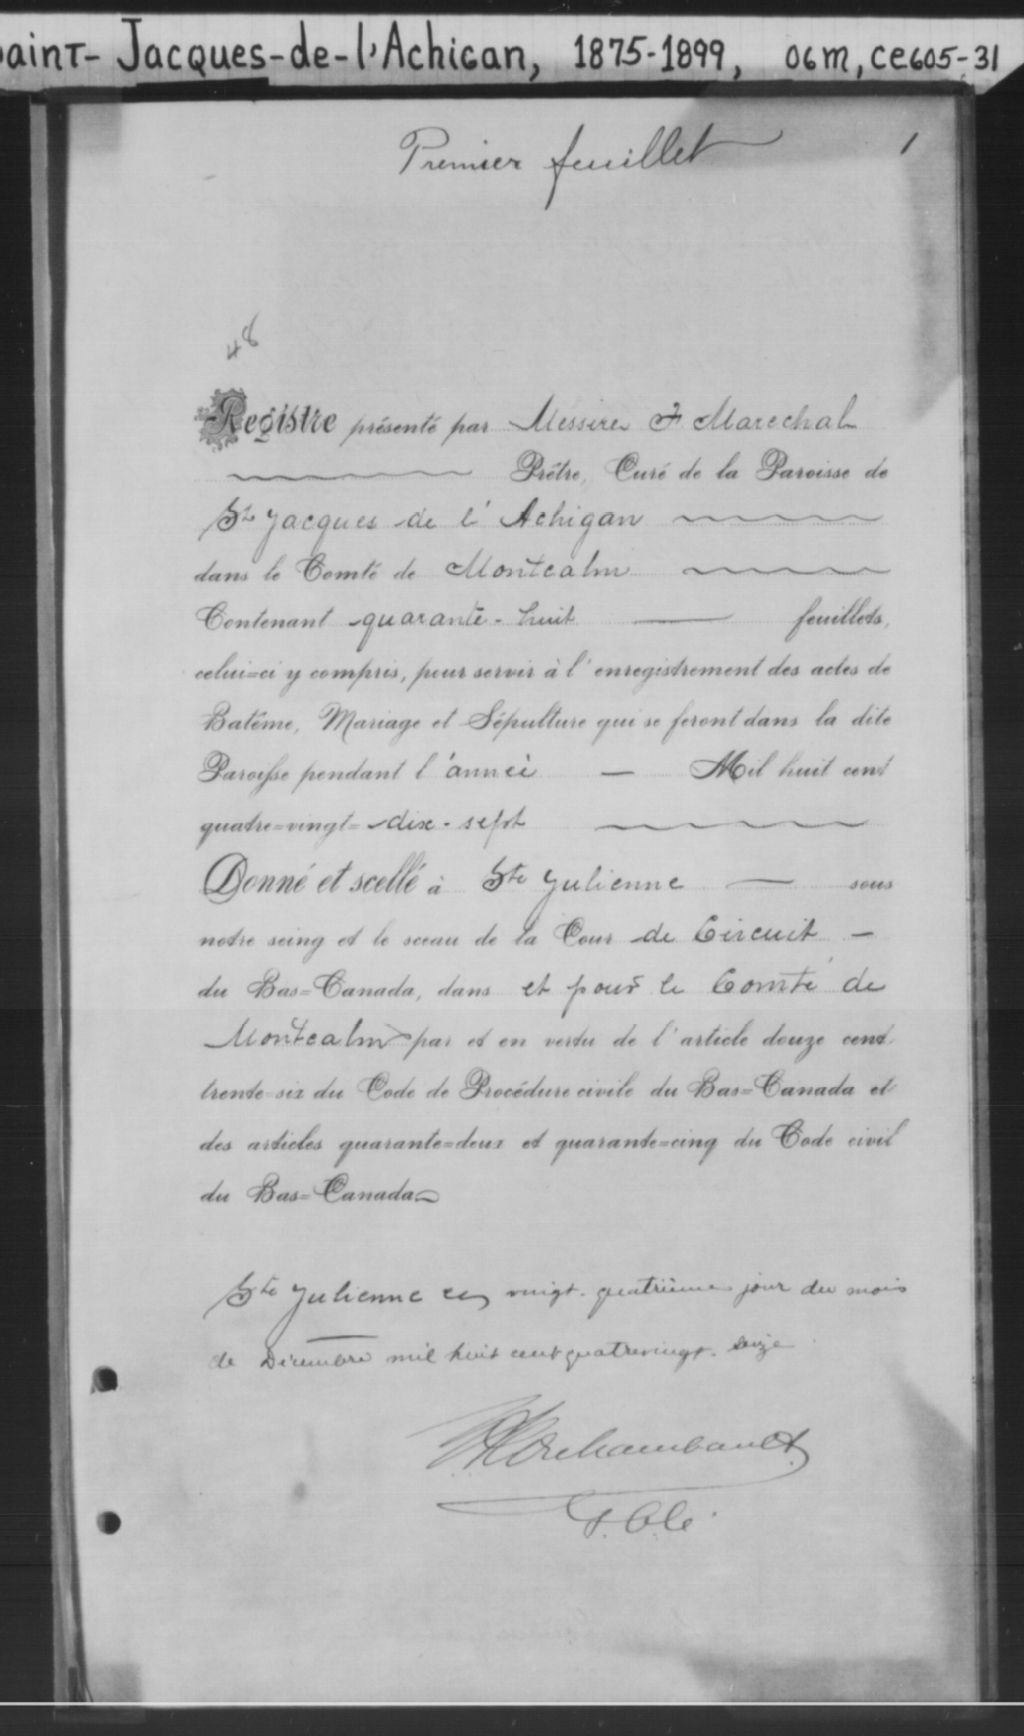 aint-Jacques-de-l'Achigan, 1875-1899, 06m, ce605-31
Premier feuillet
1
48
Registre présenté par Messire F Marechal
Prêtre, Curé de la Paroisse de
St Jacques de l'Achigan
dans le Comté de Montcalm
Contenant quarante-huit — feuillets,
celui=ci y compris, pour servir à l'enregistrement des actes de
Batême, Mariage et Sépulture qui se feront dans la dite
Paroisse pendant l'année — Mil huit cent
quatre=vingt=dix-sept
Donné et scellé à Ste Julienne — sous
notre seing et le sceau de la Cour de Circuit —
du Bas=Canada, dans et pour le Comté de
Montcalm par et en vertu de l'article douze cent
trente-six du Code de Procédure civile du Bas=Canada et
des articles quarante=deux et quarante=cinq du Code civil
du Bas=Canada
Ste Julienne ce vingt-quatrième jour du mois
de Décembre mil huit cent quatrevingt-seize
Archambault